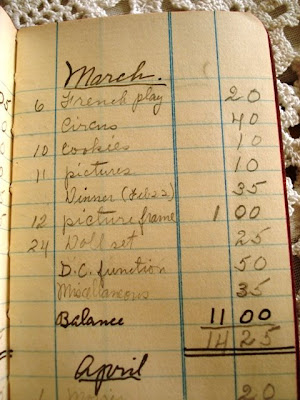 March.
6 French play 20
Circus 40
10 cookies 10
11 pictures 10
Dinner (Feb 22) 35
12 picture frame 1 00
24 Doll set 25
D.C. function 50
Miscellaneous 35
Balance 11 00
14 25
April
1 20